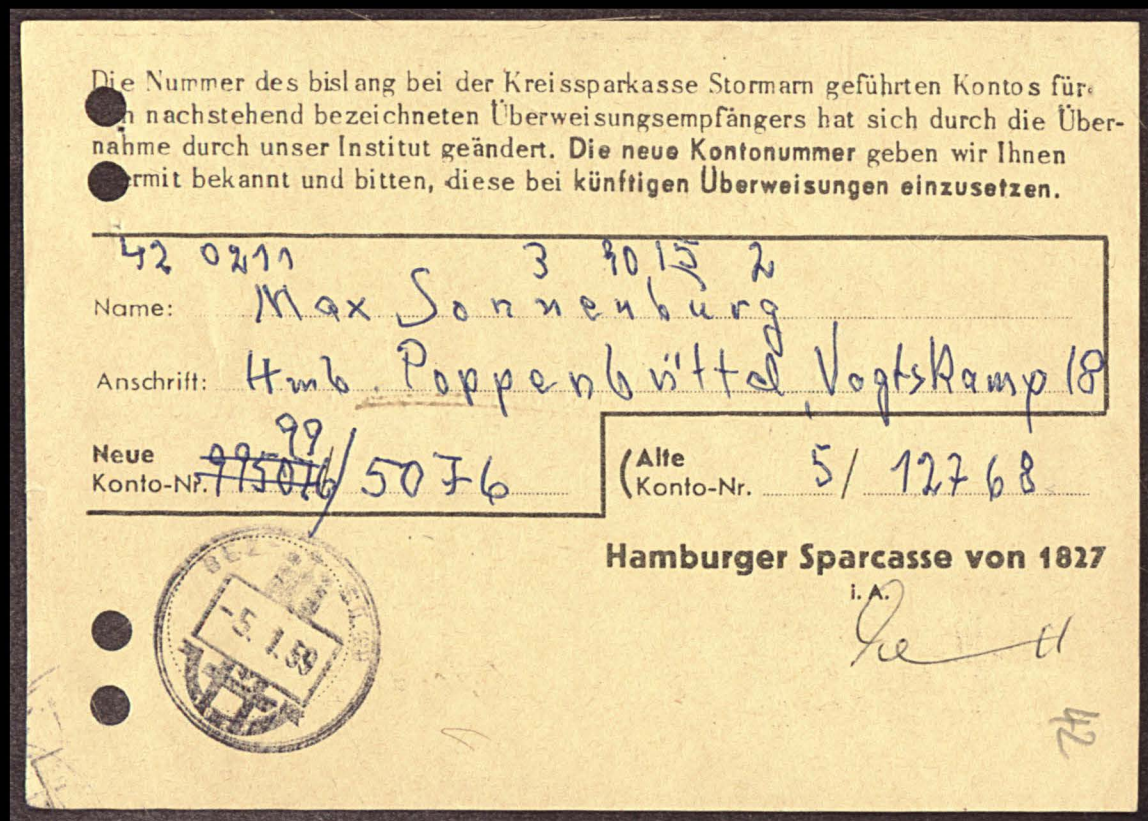 Die Nummer des bislang bei der Kreissparkasse Stormarn geführten Kontos für
nachstehend bezeichneten Überweisungsempfängers hat sich durch die Über-
nahme durch unser Institut geändert. Die neue Kontonummer geben wir Ihnen
ermit bekannt und bitten, diese bei künftigen Überweisungen einzusetzen.
42 0211 3 3015 2
Name: Max Sonnenburg
Anschrift: Hmb. Poppenbüttel, Vogtskamp 18
99
Neue
Konto-Nr. 995076/ 5076
(Alte
Konto-Nr. 5/ 12768
Hamburger Sparcasse von 1827
i. A.
-5. 1. 59
42